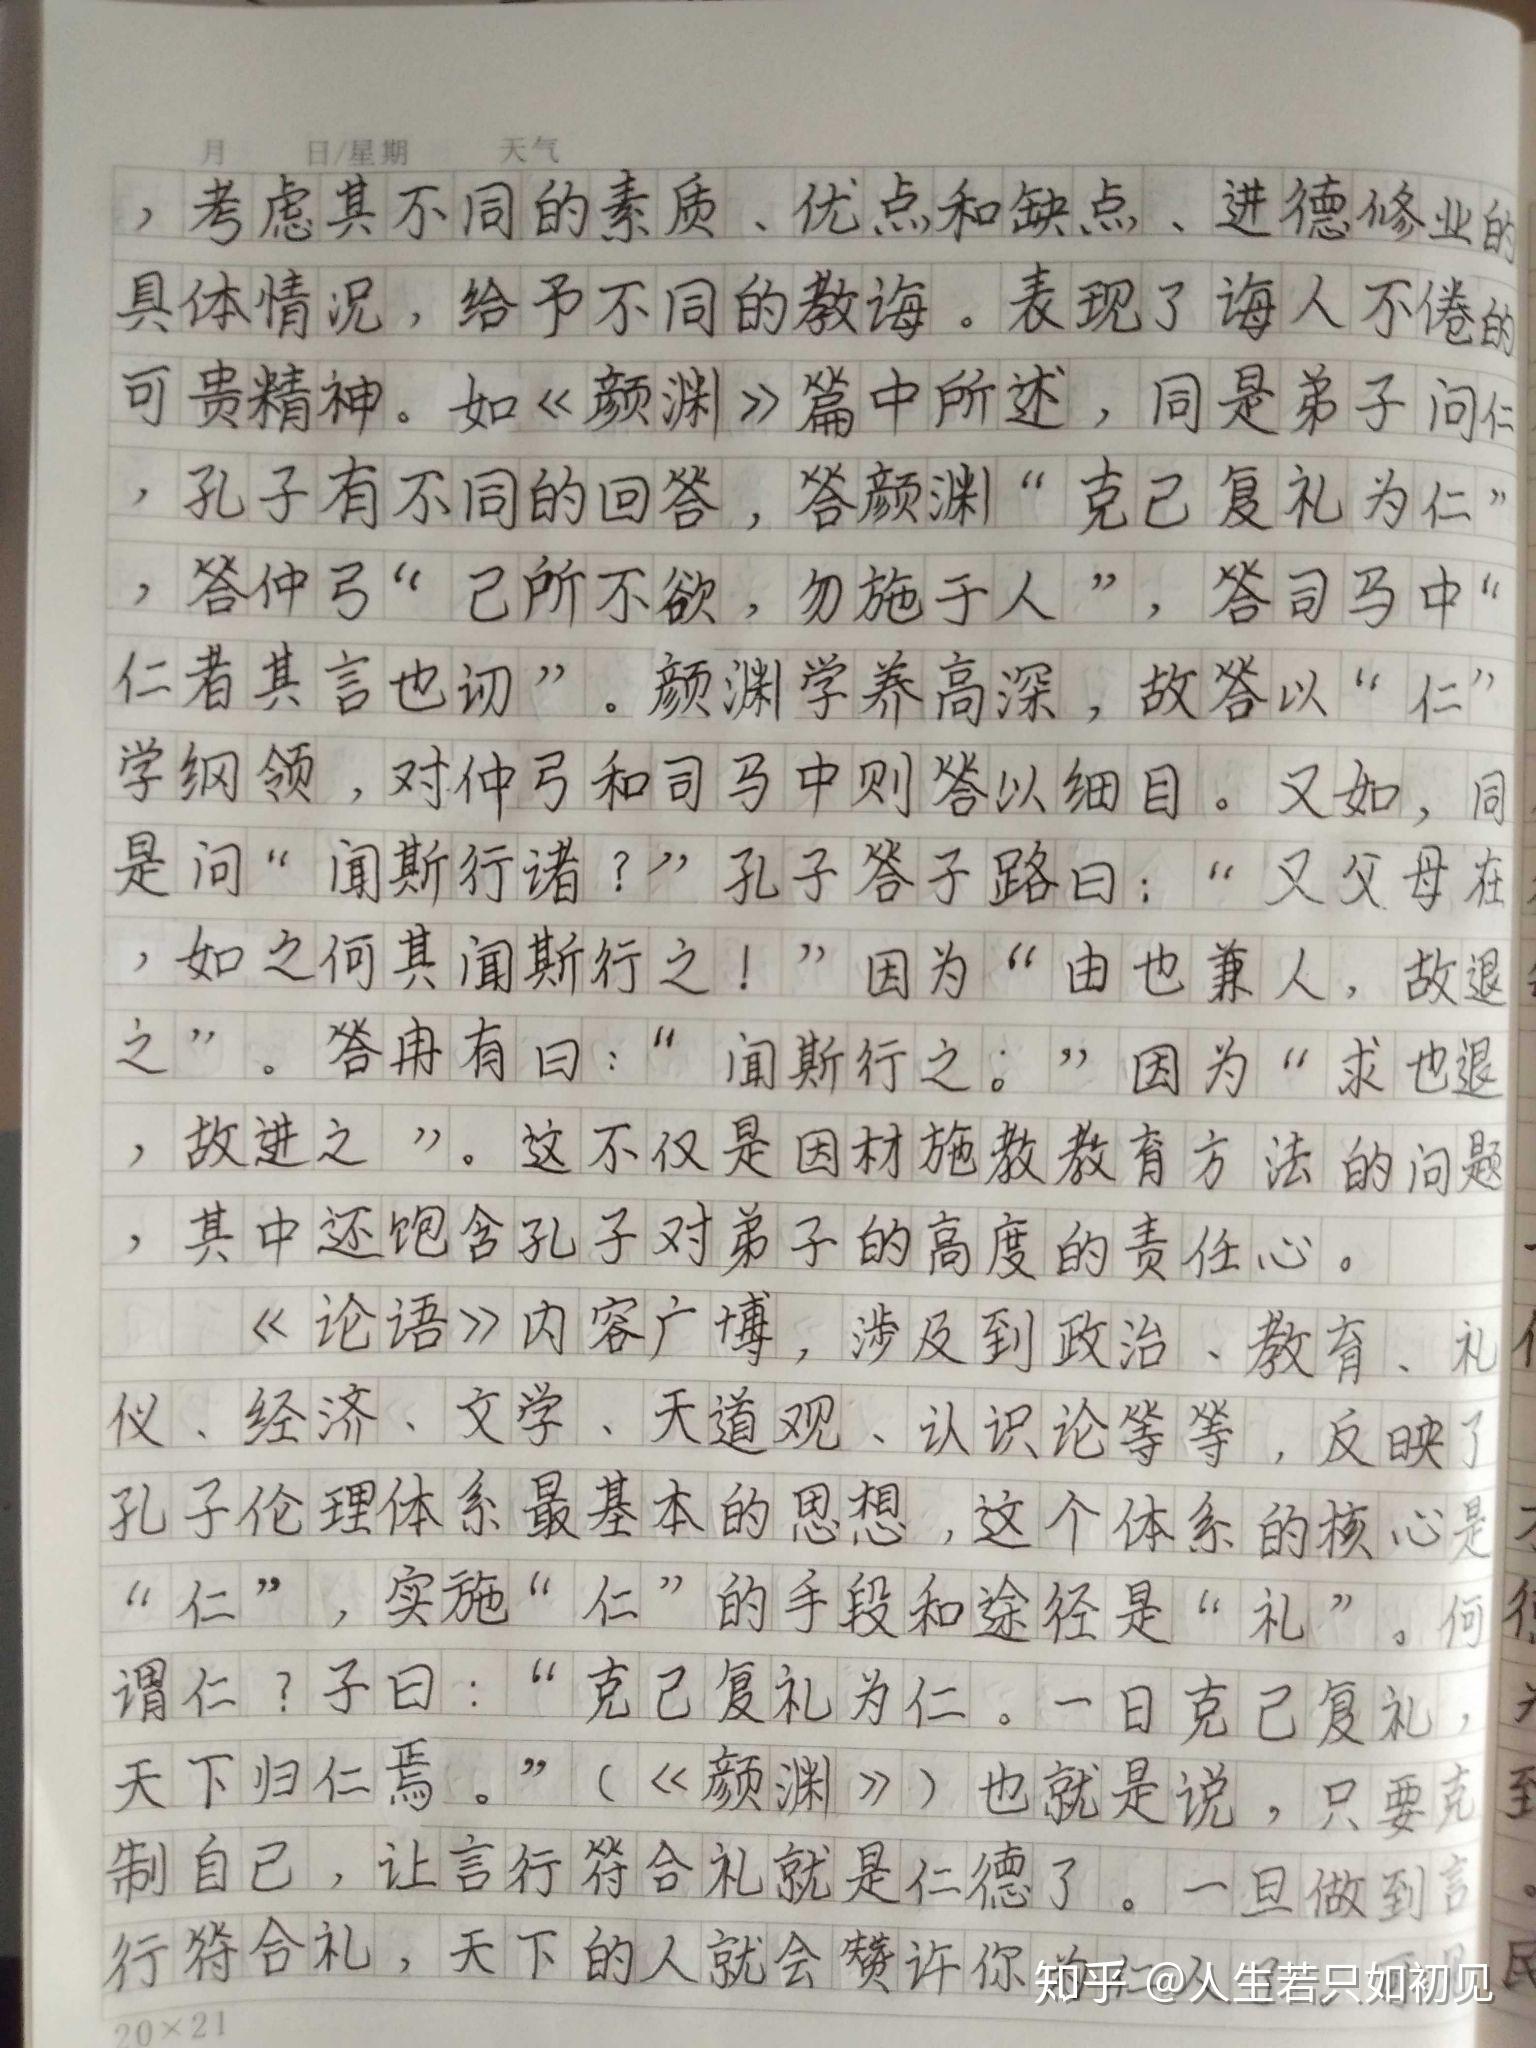 月 日/星期 天气
，考虑其不同的素质、优点和缺点、进德修业的
具体情况，给予不同的教诲。表现了诲人不倦的
可贵精神。如《颜渊》篇中所述，同是弟子问仁
，孔子有不同的回答，答颜渊“克己复礼为仁”
，答仲弓“己所不欲，勿施于人”，答司马中“
仁者其言也讱”。颜渊学养高深，故答以“仁”
学纲领，对仲弓和司马中则答以细目。又如，同
是问“闻斯行诸？”孔子答子路曰：“又父母在
，如之何其闻斯行之！”因为“由也兼人，故退
之”。答冉有曰：“闻斯行之。”因为“求也退
，故进之”。这不仅是因材施教教育方法的问题
，其中还饱含孔子对弟子的高度的责任心。
《论语》内容广博，涉及到政治、教育、礼
仪、经济、文学、天道观、认识论等等，反映了
孔子伦理体系最基本的思想，这个体系的核心是
“仁”，实施“仁”的手段和途径是“礼”。何
谓仁？子曰：“克己复礼为仁。一日克己复礼，
天下归仁焉。”（《颜渊》）也就是说，只要克
制自己，让言行符合礼就是仁德了。一旦做到言
行符合礼，天下的人就会赞许你
知乎 @人生若只如初见
20×21